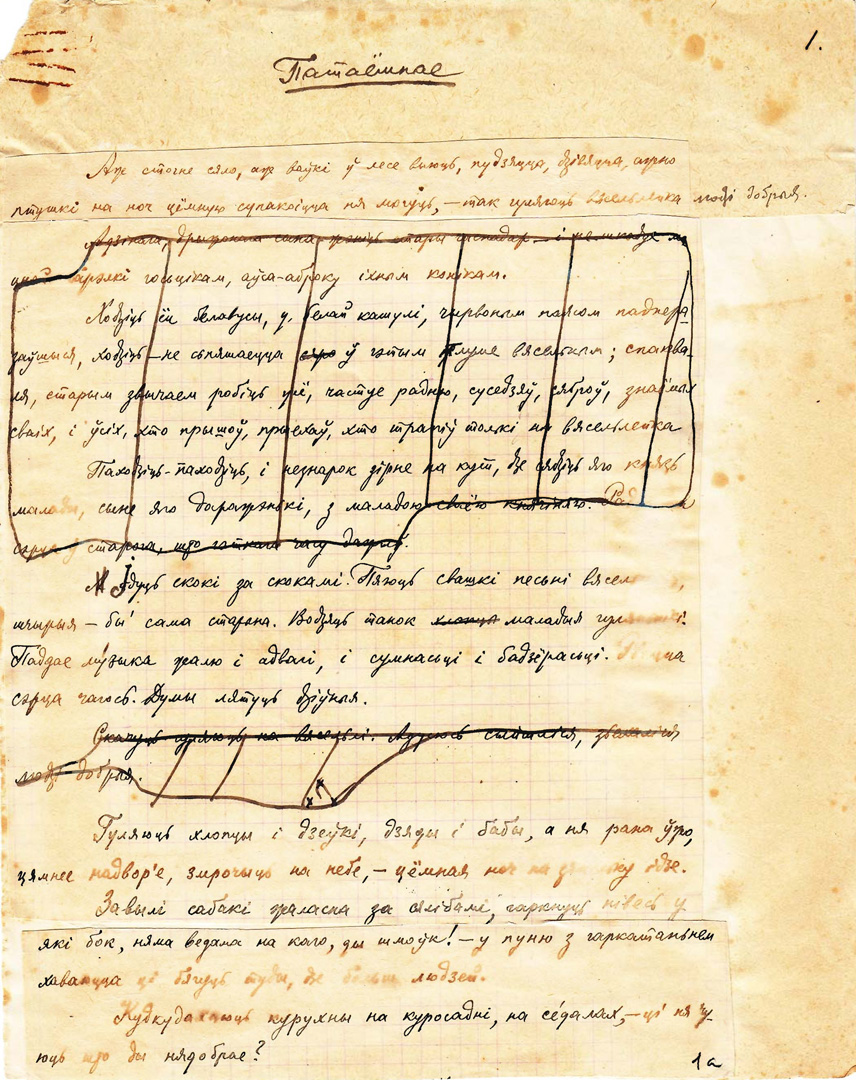 1.
Патаёмнае
Аж стогне сяло, аж ваўкі ў лесе выюць, пудзяцца, дзівяцца, ажно
птушкі на ноч цёмную супакоіцца ня могуць, — так гуляюць вясельлейка людзі добрыя.
Адзінага, сына жэніць стары гаспадар — і не шкадуе
гарэлкі госьцікам, аўса-аброку іхным конікам.
Ходзіць ён белавусы, у белай кашулі, чырвоным паясом падпера
заўшыся, ходзіць — не сьпяшаецца ў гэтым шуме вясельным; спаква-
ля, старым звычаем робіць усё, частуе радню, суседзяў, сяброў, знаёмых
сваіх, і ўсіх, хто прышоў, прыехаў, хто трапіў толькі на вясельлейка
Паходзіць-паходзіць, і незнарок зірне на кут, дзе сядзіць яго князь
малады, сыне яго даражэнькі, з маладою сваёю княгіняю.
сэрца ў старога, што гэткага часу дажыў.
Ідуць скокі за скокамі. Пяюць свашкі песьні
шчырыя — бы сама старана. Водзяць танок хлопцы маладыя
Паддае музыка жалю і адвагі, і сумнасьці і бадзёрасьці.
сэрца чагось. Думы лятуць дзіўныя.
Скачуць гуляюць на вясельлі.
людзі добрыя.
Гуляюць хлопцы і дзеўкі, дзяды і бабы, а ня рана ўжо,
цямнее надвор'е, змрочыць на небе, — цёмная ноч на ідзе.
Завылі сабакі жаласна за сялібамі, гаркнуць нівесь у
які бок, няма ведама на каго, ды шмоўк! — у пуню з гаркатаньнем
хаваюцца ці бягуць туды, дзе больш людзей.
Кудкудахаюць курухны на куросадні, на седалах, — ці ня чу-
юць што ды нядобрае?
1а